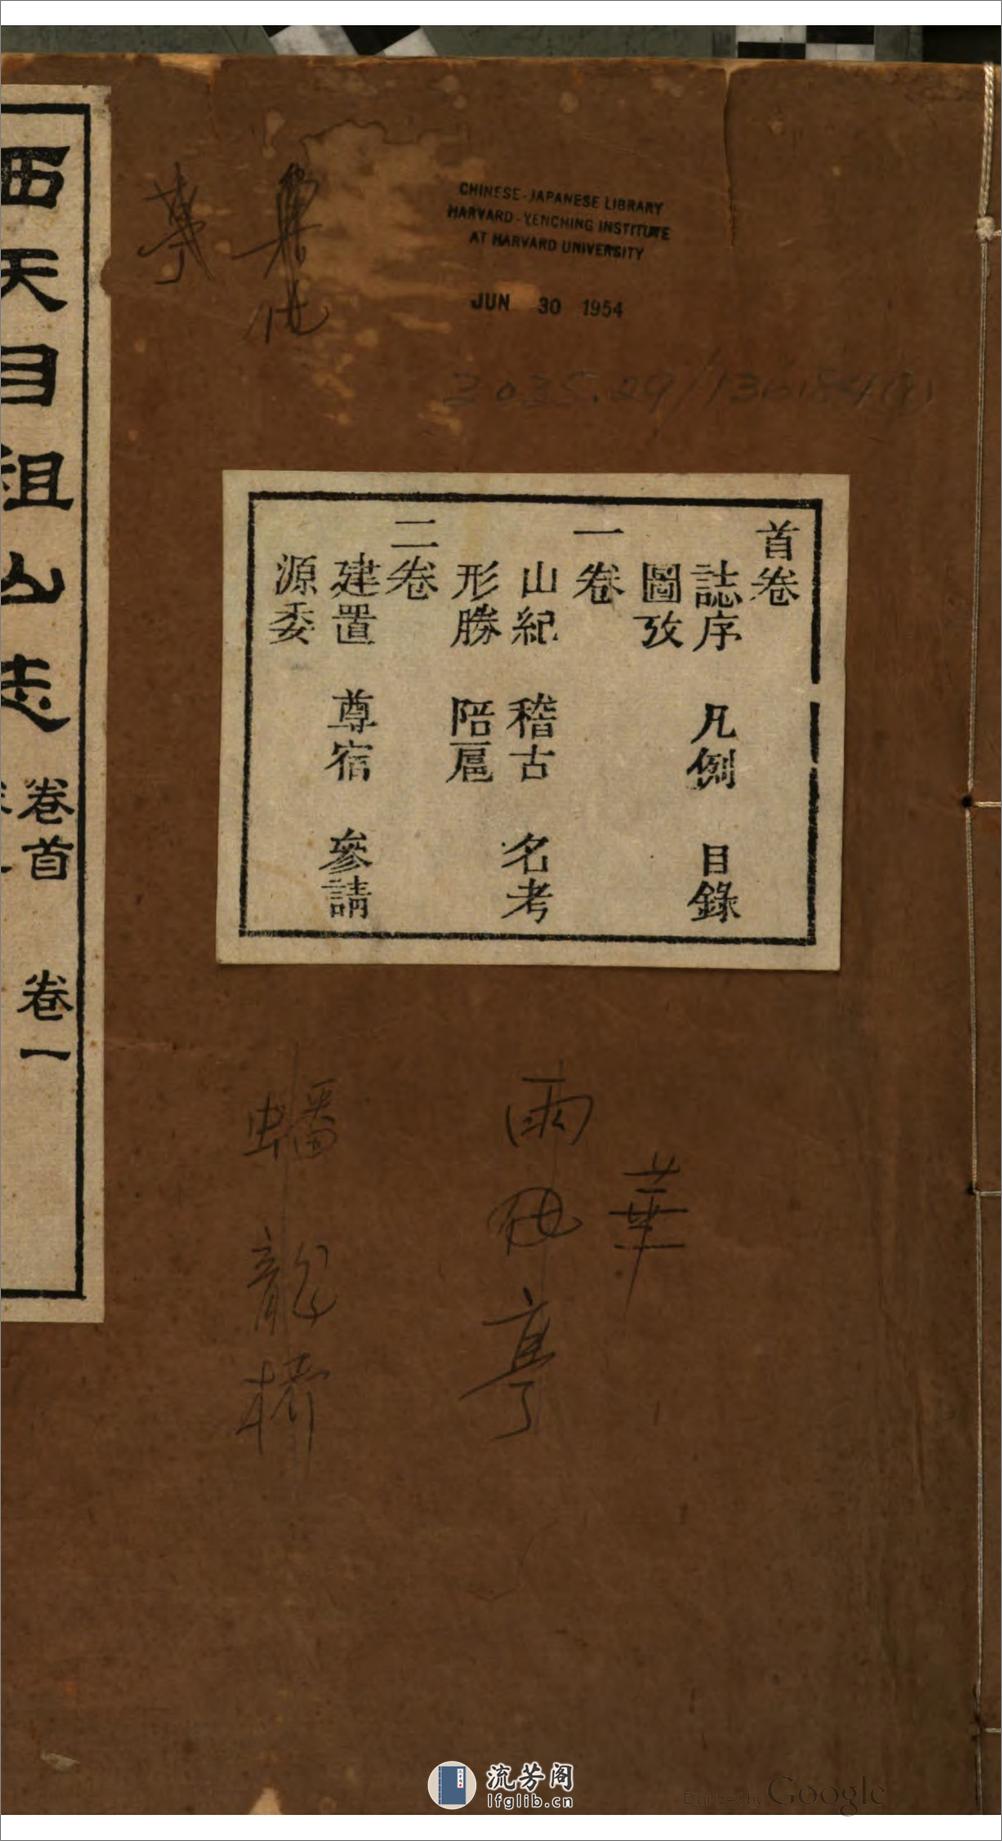 CHINESE-JAPANESE LIBRARY
HARVARD-YENCHING INSTITUTE
AT HARVARD UNIVERSITY
JUN 30 1954
首卷
誌序 凡例 目錄
圖攷
一卷
山紀 稽古 名考
形勝 陪扈
二卷
建置 尊宿 參請
源委
西天目祖山志
卷首 卷一
華
雨
亭
蟠龍橋
流芳阁
lfglib.cn
Google